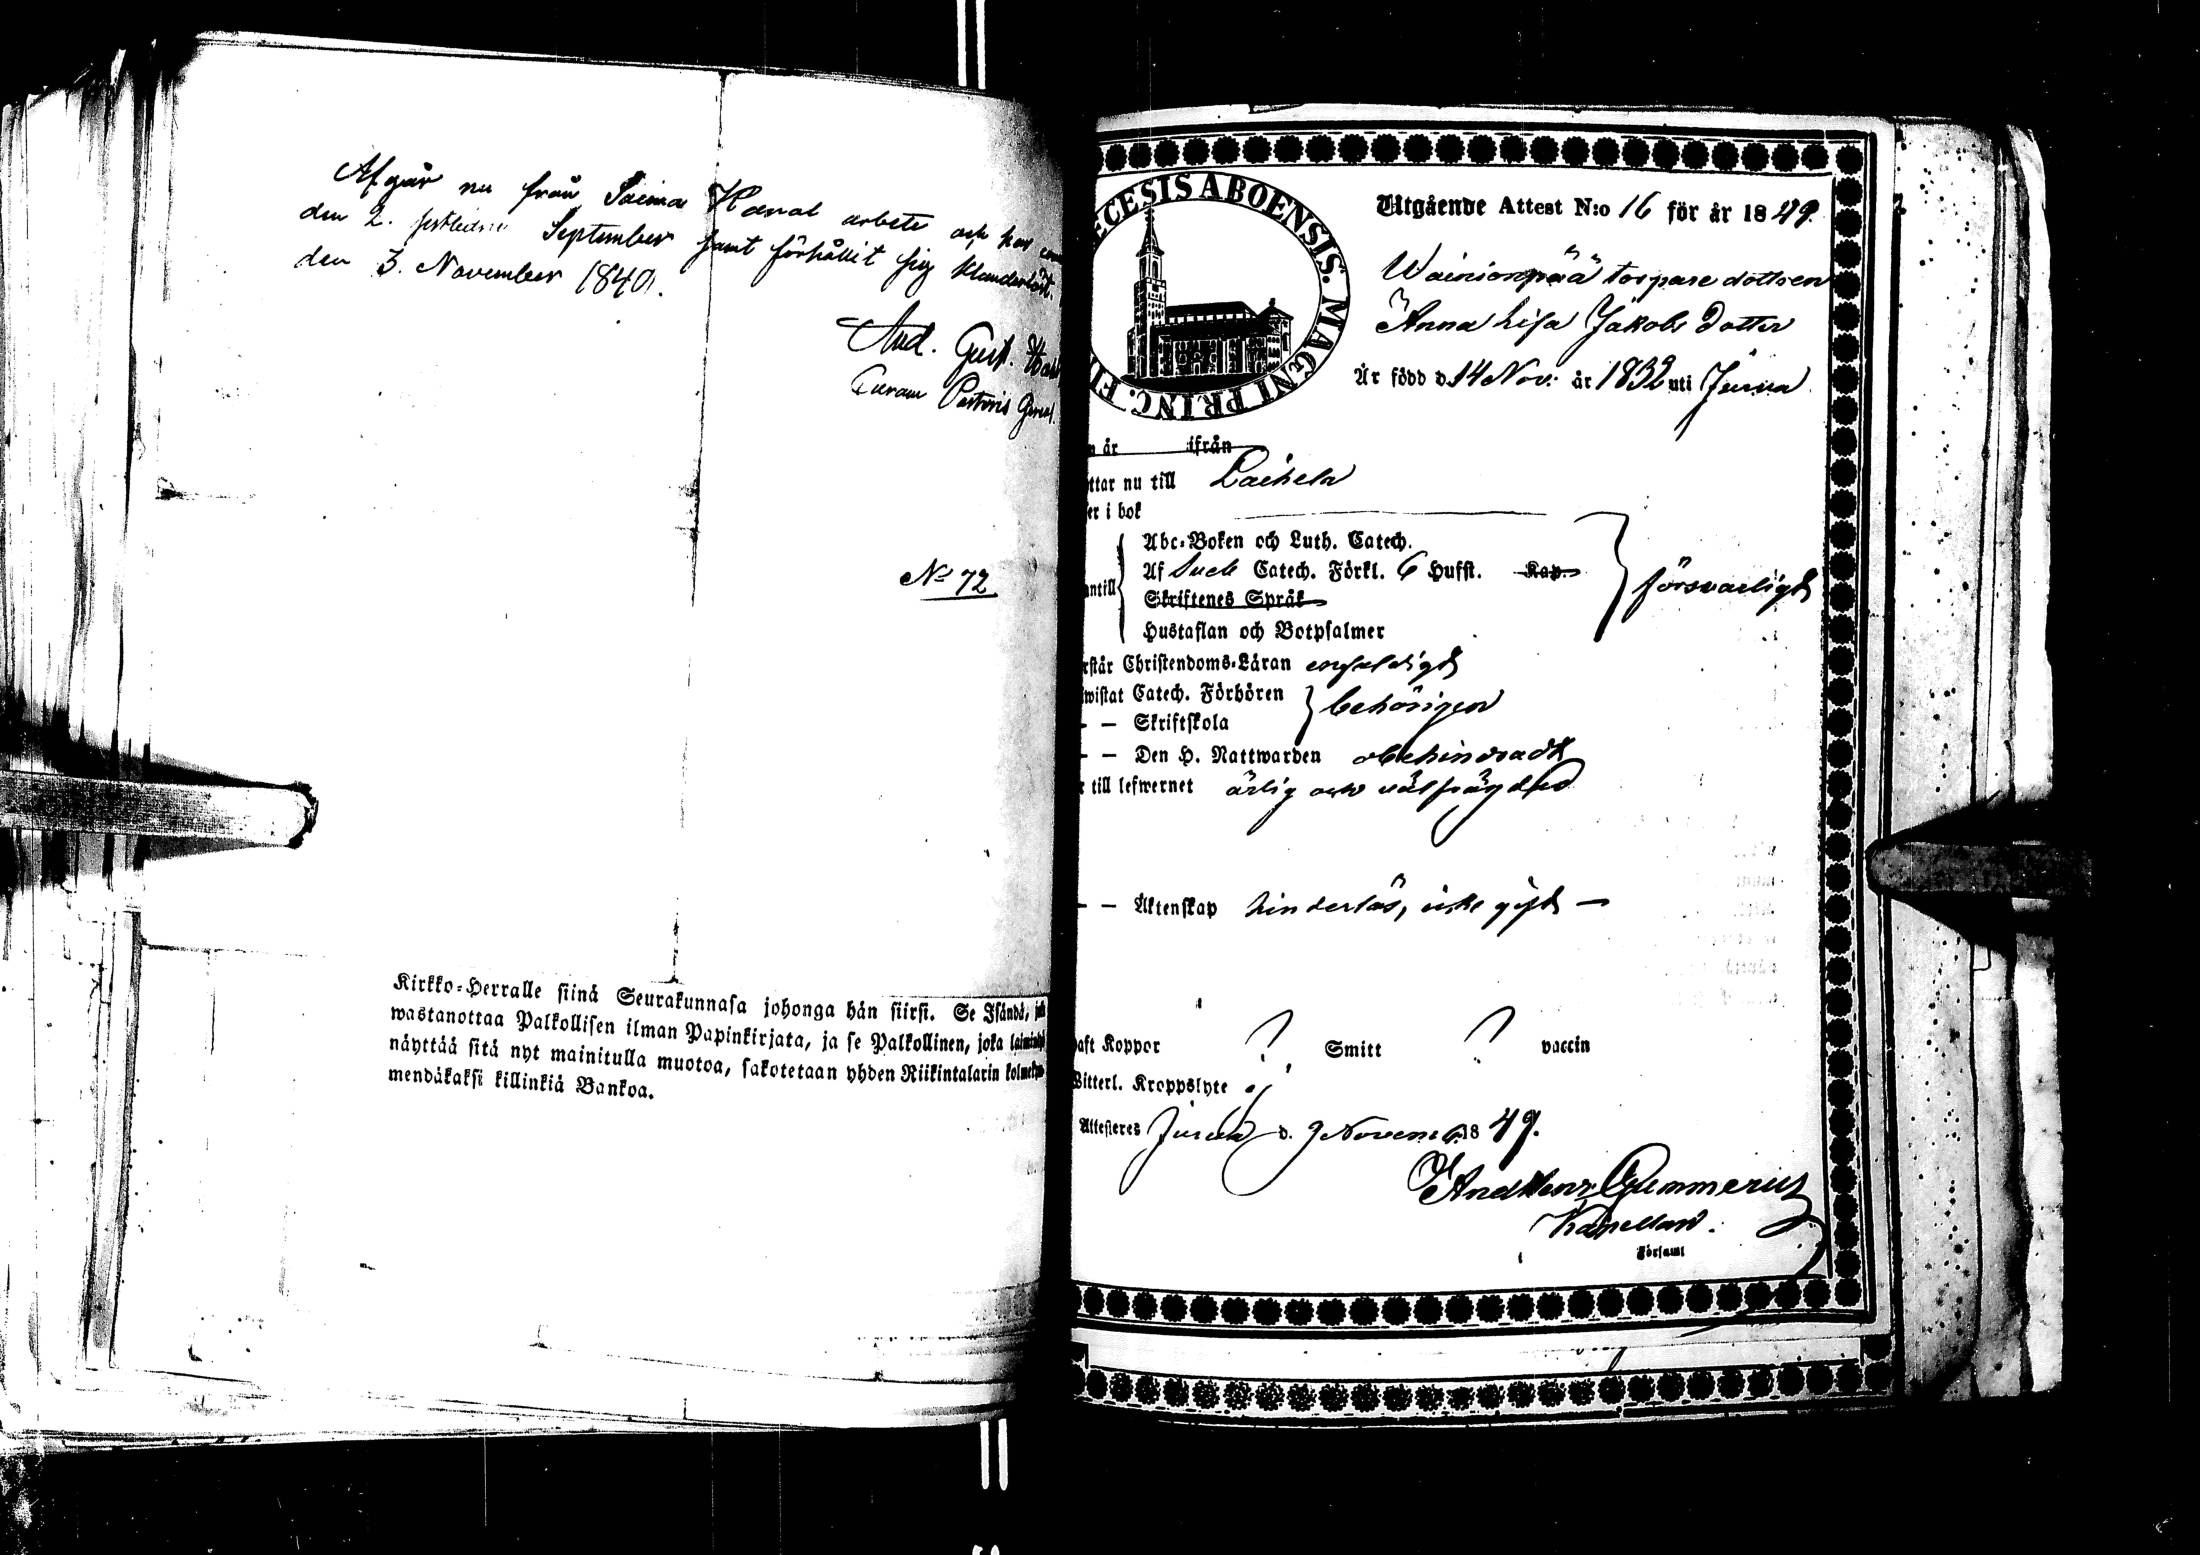 Afgår nu från Saima Kanal arbete och har
den 2. September samt förhållit sig klanderlöst.
den 3. November 1840.
And. Gust.
Curam Pastoris Gerens
No 72
Kirkko-Herralle siinä Seurakunnasa johonga hän siirsi. Se Isändä,
wastanottaa Palkollisen ilman Papinkirjata, ja se Palkollinen, joka
näyttää sitä nyt mainitulla muotoa, sakotetaan yhden Riikintalarin
mendäkaksi killinkiä Bankoa.
ECESIS ABOENSIS. MAGNI PRINC. FI
Utgående Attest N:o 16 för år 1849.
Wainionpää torpare dottren
Anna Lisa Jakobs Dotter
Är född d. 14 Nov: år 1832 uti Jurva
år ifrån
ttar nu till Laihela
er i bok
Abc-Boken och Luth. Catech.
Af Sueb Catech. Förkl. 6 Hufst. Kap.
antill försvarligt
Skriftenes Språk
Hustaflan och Botpsalmer
rstår Christendoms-Läran enfaldigt
wistat Catech. Förhören
behörigen
— — Skriftskola
— — Den H. Nattwarden obehindradt
till lefwernet ärlig och välfrägdad
— — Äktenskap hinderlös, icke gift —
aft Koppor ? Smitt ? vaccin
Witterl. Kroppslyte ej
Attesteres Jurva d. 9 Novemb. 1849.
And Henr Gummerus
Kapellan.
Församl